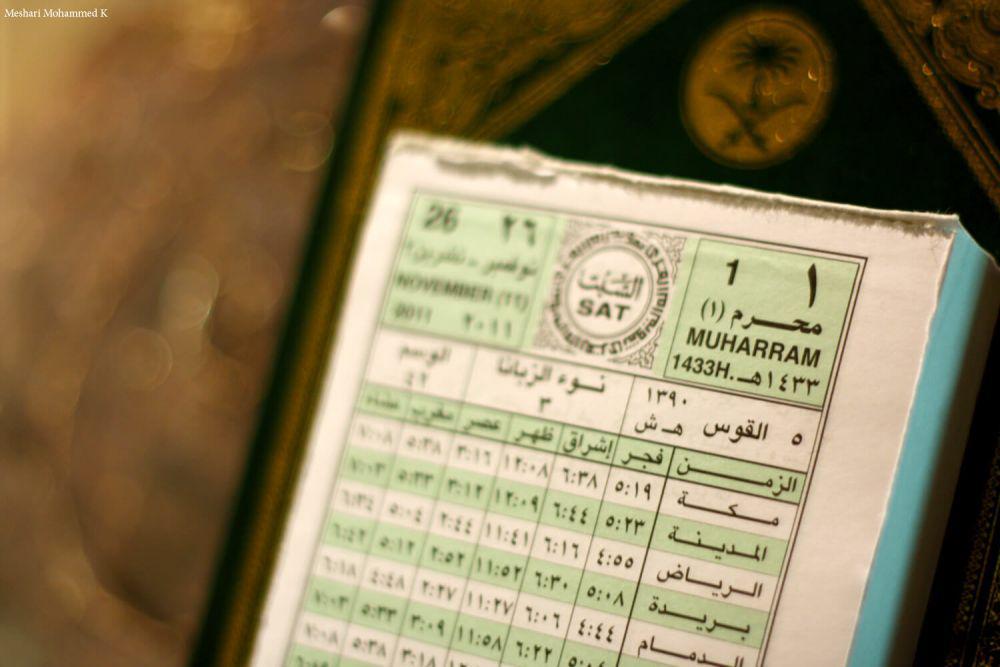 Meshari Mohammed K
١ 1
محرم (١)
MUHARRAM
١٤٣٣هـ 1433H.
السَّبْت
SAT
٢٦ 26
نوفمبر - تشرين٢
NOVEMBER (11)
٢٠١١ 2011
٥ القوس ١٣٩٠ هـ ش
نوء الزبانا ٣
الوسم ٤٢
الزمن فجر إشراق ظهر عصر مغرب عشاء
مكة ٥:١٩ ٦:٣٨ ١٢:٠٨ ٣:١٦ ٥:٣٨ ٧:٠٨
المدينة ٥:٢٣ ٦:٤٤ ١٢:٠٩ ٣:١٢ ٥:٣٣ ٧:٠٣
الرياض ٤:٥٥ ٦:١٦ ١١:٤١ ٢:٤٤ ٥:٠٤ ٦:٣٤
بريدة ٥:٠٨ ٦:٣٠ ١١:٥٢ ٢:٥٢ ٥:١٢ ٦:٤٢
الدمام ٤:٤٤ ٦:٠٦ ١١:٢٧ ٢:٢٧ ٤:٤٨ ٦:١٨
٦:٢٢ ١١:٥٨ ٣:٠٩ ٥:٣٣ ٧:٠٣
٣:١٨ ٥:٣٨ ٧:٠٨